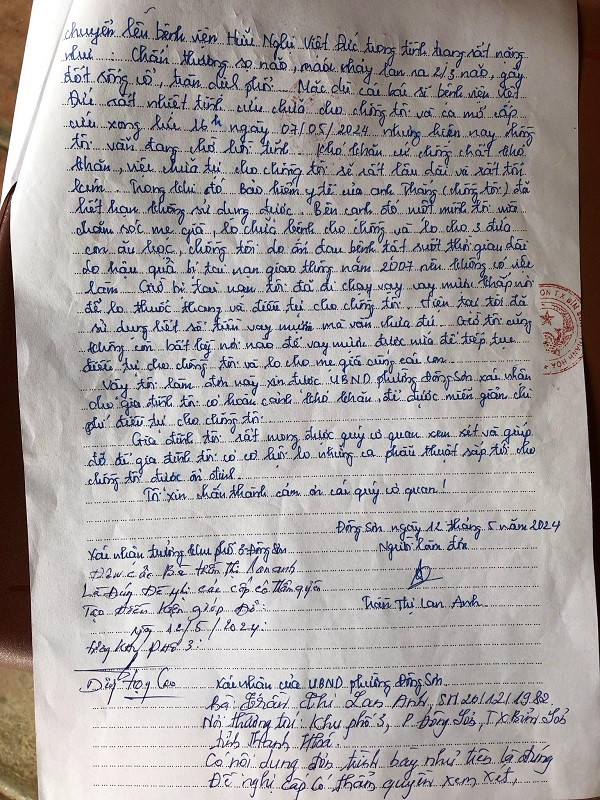 chuyển lên bệnh viện Hữu Nghị Việt Đức trong tình trạng rất nặng
như : Chấn thương sọ não, máu chảy lan ra 2/3 não, gãy
đốt sống cổ, dập phổi... Mặc dù các bác sĩ bệnh viện Việt
Đức rất nhiệt tình cứu chữa cho chồng tôi và ca mổ cấp
cứu xong lúc 16h ngày 07/05/2024 nhưng hiện nay chồng
tôi vẫn đang chờ hồi tỉnh. Khó khăn cứ chồng chất khó
khăn, việc chữa trị cho chồng tôi sẽ rất lâu dài và rất tốn
kém. Trong khi đó Bảo hiểm y tế của anh Thắng (chồng tôi) đã
hết hạn không sử dụng được. Bên cạnh đó một mình tôi vừa
chăm sóc mẹ già, lo chữa bệnh cho chồng và lo cho 3 đứa
con ăn học, chồng tôi do ốm đau bệnh tật suốt thời gian dài
do hậu quả bị tai nạn giao thông năm 2007 nên không có việc
làm. Giờ bị tai nạn tôi đã đi chạy vạy vay mượn khắp nơi
để lo thuốc thang và điều trị cho chồng tôi. Hiện tại tôi đã
sử dụng hết số tiền vay mượn mà vẫn chưa đủ. Giờ tôi cũng
không còn bất kỳ nơi nào để vay mượn được nữa để tiếp tục
điều trị cho chồng tôi và lo cho mẹ già cùng các con.
Vậy tôi làm đơn này xin được UBND phường Đông Sơn xác nhận
cho gia đình tôi có hoàn cảnh khó khăn để được miễn giảm chi
phí điều trị cho chồng tôi.
Gia đình tôi rất mong được quý cơ quan xem xét và giúp
đỡ để gia đình tôi có cơ hội lo những ca phẫu thuật sắp tới cho
chồng tôi được ổn định.
Tôi xin chân thành cảm ơn các quý cơ quan!
Đông Sơn ngày 12 tháng 5 năm 2024
Xác nhận trưởng khu phố 3 Đông Sơn
Người làm đơn
Đơn của Bà Trần Thị Lan Anh
Là Đúng Đề nghị các cấp có thẩm quyền
Tạo Điều kiện giúp Đỡ
Trần Thị Lan Anh
Ngày 12/5/2024
Khu phố 3
Xác nhận của UBND phường Đông Sơn
Bà: Trần Thị Lan Anh, SN 20/12/1982
Nơi thường trú: Khu phố 3, P. Đông Sơn, T.X Bỉm Sơn
tỉnh Thanh Hoá.
Có nội dung đơn trình bày như trên là đúng
Đề nghị cấp có thẩm quyền xem xét,